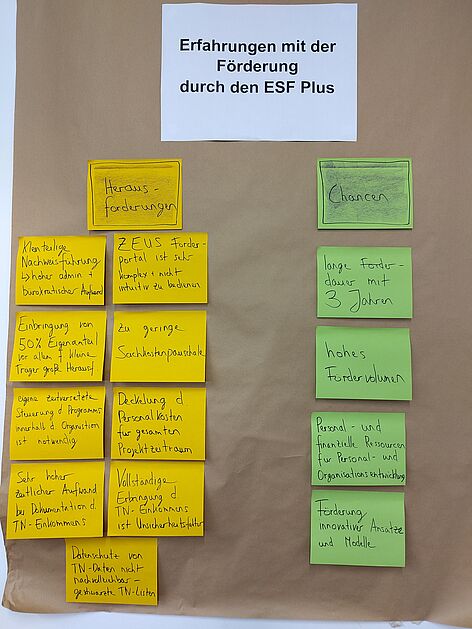 Erfahrungen mit der
Förderung
durch den ESF Plus
Heraus-
forderungen
Kleinteilige
Nachweisführung
↳ hoher admin +
bürokratischer Aufwand
Einbringung von
50% Eigenanteil
vor allem f. kleine
Träger große Herausf.
eigene zeitversetzte
Steuerung d. Programms
innerhalb d. Organisation
ist notwendig
Sehr hoher
zeitlicher Aufwand
bei Dokumentation d.
TN-Einkommens
ZEUS Förder-
portal ist sehr
komplex + nicht
intuitiv zu bedienen
zu geringe
Sachkostenpauschale
Deckelung d.
Personalkosten
für gesamten
Projektzeitraum
Vollständige
Erbringung d.
TN-Einkommens
ist Unsicherheitsfaktor
Datenschutz von
TN-Daten nicht
nachvollziehbar -
geschwärzte TN-Listen
Chancen
lange Förder-
dauer mit
3 Jahren
hohes
Fördervolumen
Personal- und
finanzielle Ressourcen
für Personal- und
Organisationsentwicklung
Förderung
innovativer Ansätze
und Modelle